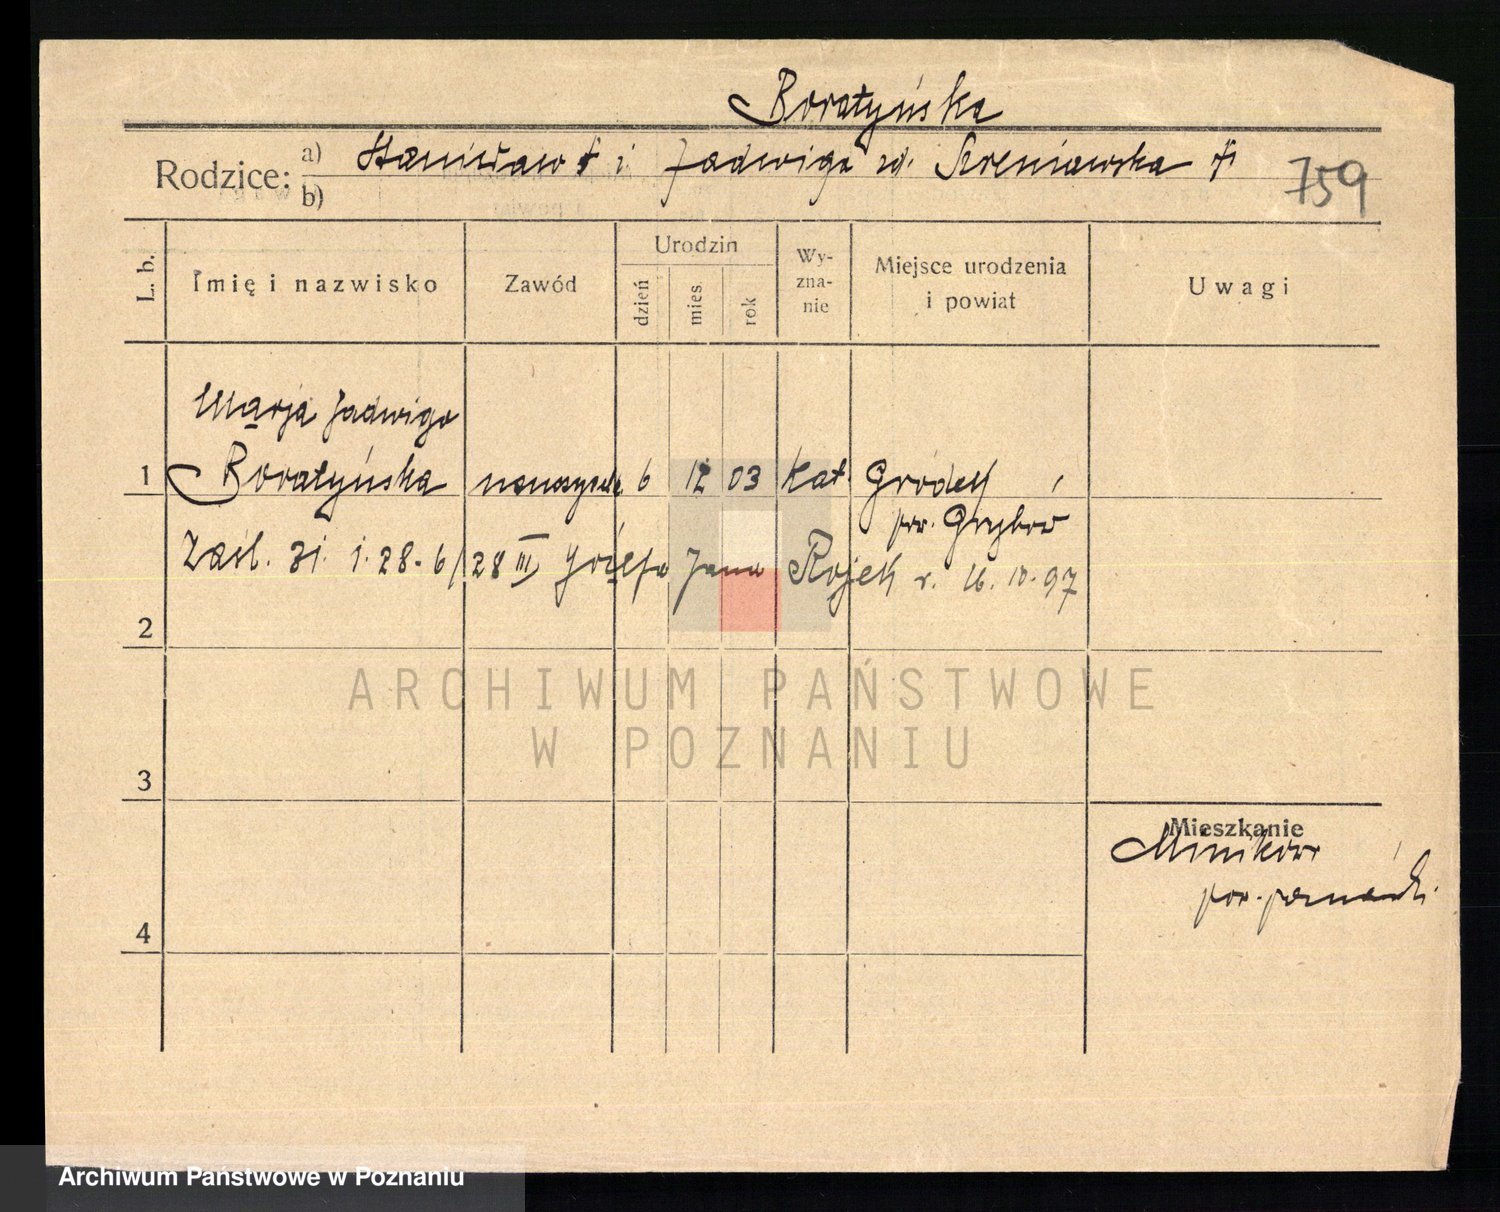 Boratyńska
Rodzice:
a) Stanisław † i Jadwiga zd. Sreniawska †
b)
759
L. b.
Imię i nazwisko
Zawód
Urodzin
dzień
mies.
rok
Wy-
zna-
nie
Miejsce urodzenia
i powiat
Uwagi
Marja Jadwiga
1 Boratyńska 6 12 03 kat. Gródek
pow. Grybów
Zaśl. 31. 1. 28. 6/28 III, Józefa Jana Rojek r. 16. 10. 97
2
3
4
Mieszkanie
Minikowo
pow. poznański.
ARCHIWUM PAŃSTWOWE
W POZNANIU
Archiwum Państwowe w Poznaniu